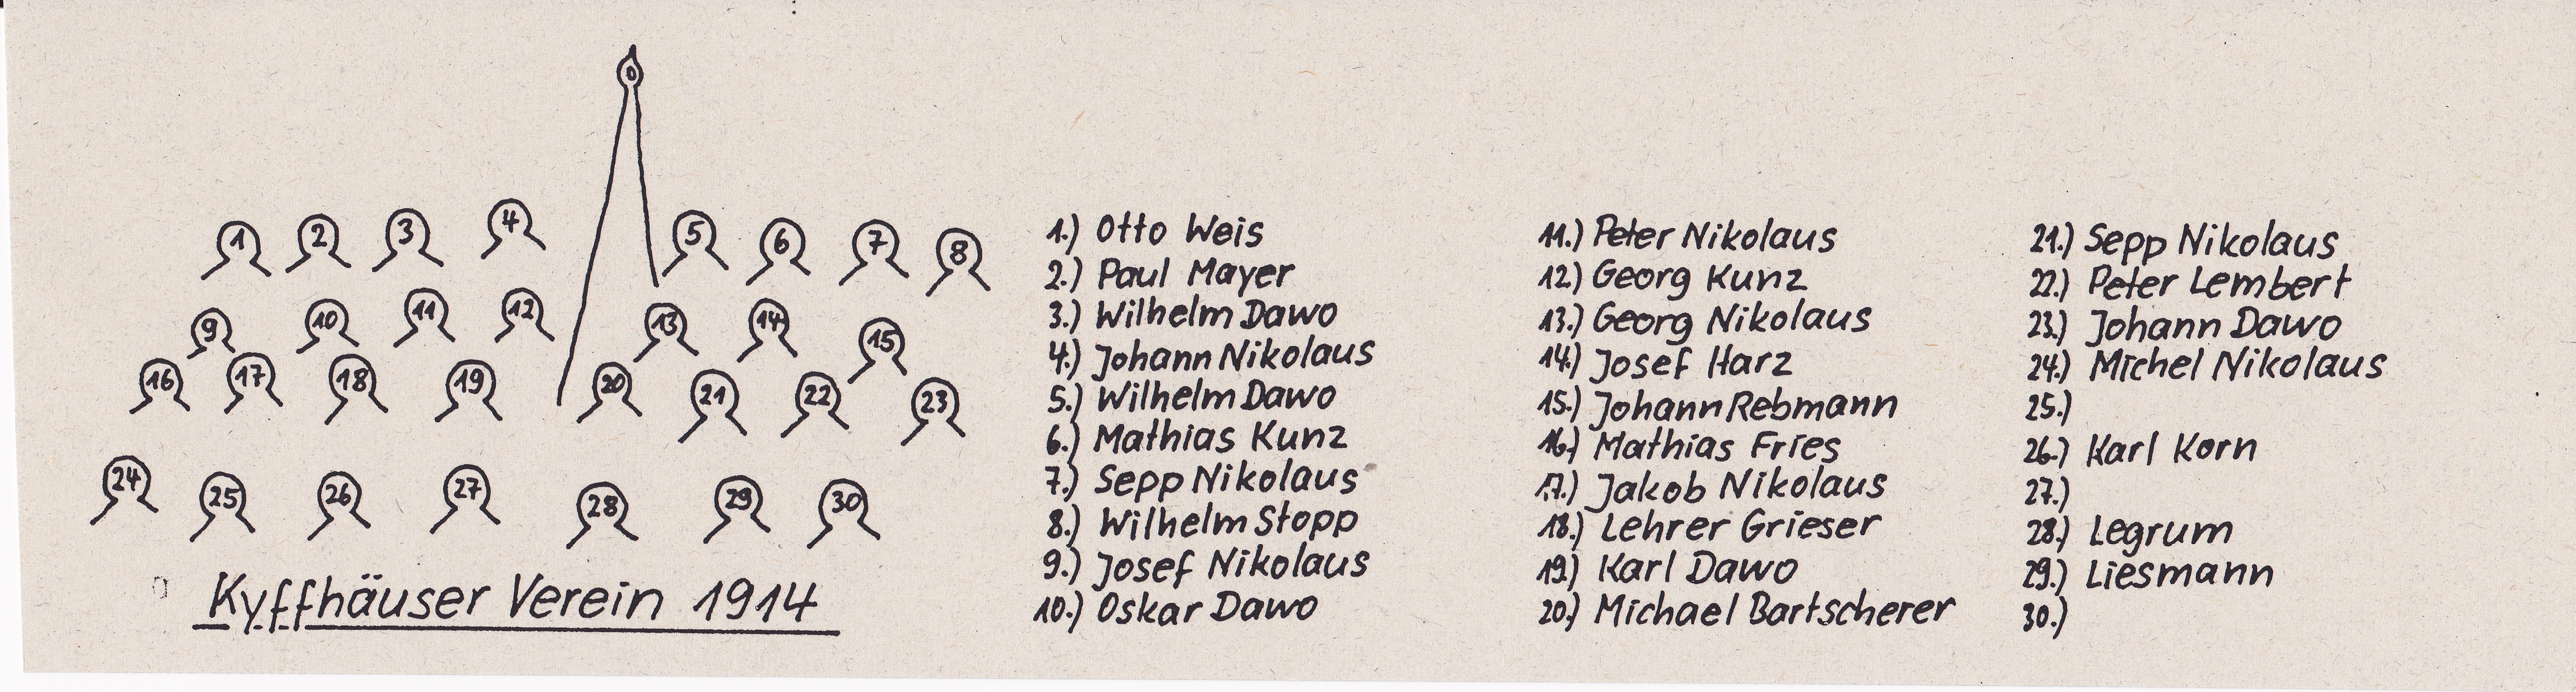 1 2 3 4 5 6 7 8
9 10 11 12 13 14 15
16 17 18 19 20 21 22 23
24 25 26 27 28 29 30
Kyffhäuser Verein 1914
1.) Otto Weis
2.) Paul Mayer
3.) Wilhelm Dawo
4.) Johann Nikolaus
5.) Wilhelm Dawo
6.) Mathias Kunz
7.) Sepp Nikolaus
8.) Wilhelm Stopp
9.) Josef Nikolaus
10.) Oskar Dawo
11.) Peter Nikolaus
12.) Georg Kunz
13.) Georg Nikolaus
14.) Josef Harz
15.) Johann Rebmann
16.) Mathias Fries
17.) Jakob Nikolaus
18.) Lehrer Grieser
19.) Karl Dawo
20.) Michael Bartscherer
21.) Sepp Nikolaus
22.) Peter Lembert
23.) Johann Dawo
24.) Michel Nikolaus
25.)
26.) Karl Korn
27.)
28.) Legrum
29.) Liesmann
30.)